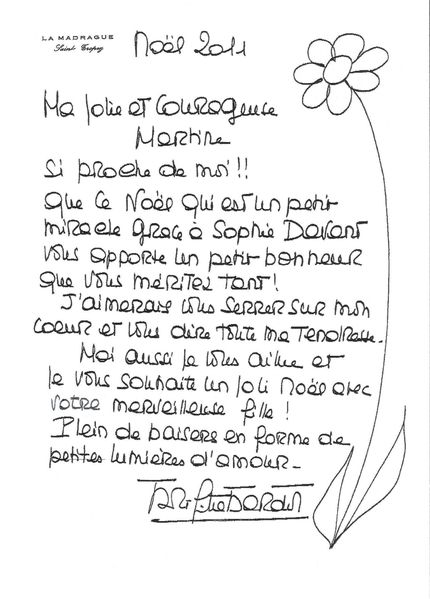 LA MADRAGUE
Saint-Tropez
Noël 2011
Ma Jolie et Courageuse
Martine
Si proche de moi !!
Que ce Noël qui est un petit
miracle grâce à Sophie Davant
vous apporte un petit bonheur
que vous méritez tant !
J'aimerais vous serrer sur mon
coeur et vous dire toute ma tendresse.
Moi aussi je vous aime et
je vous souhaite un joli Noël avec
votre merveilleuse fille !
Plein de baisers en forme de
petites lumières d'amour_